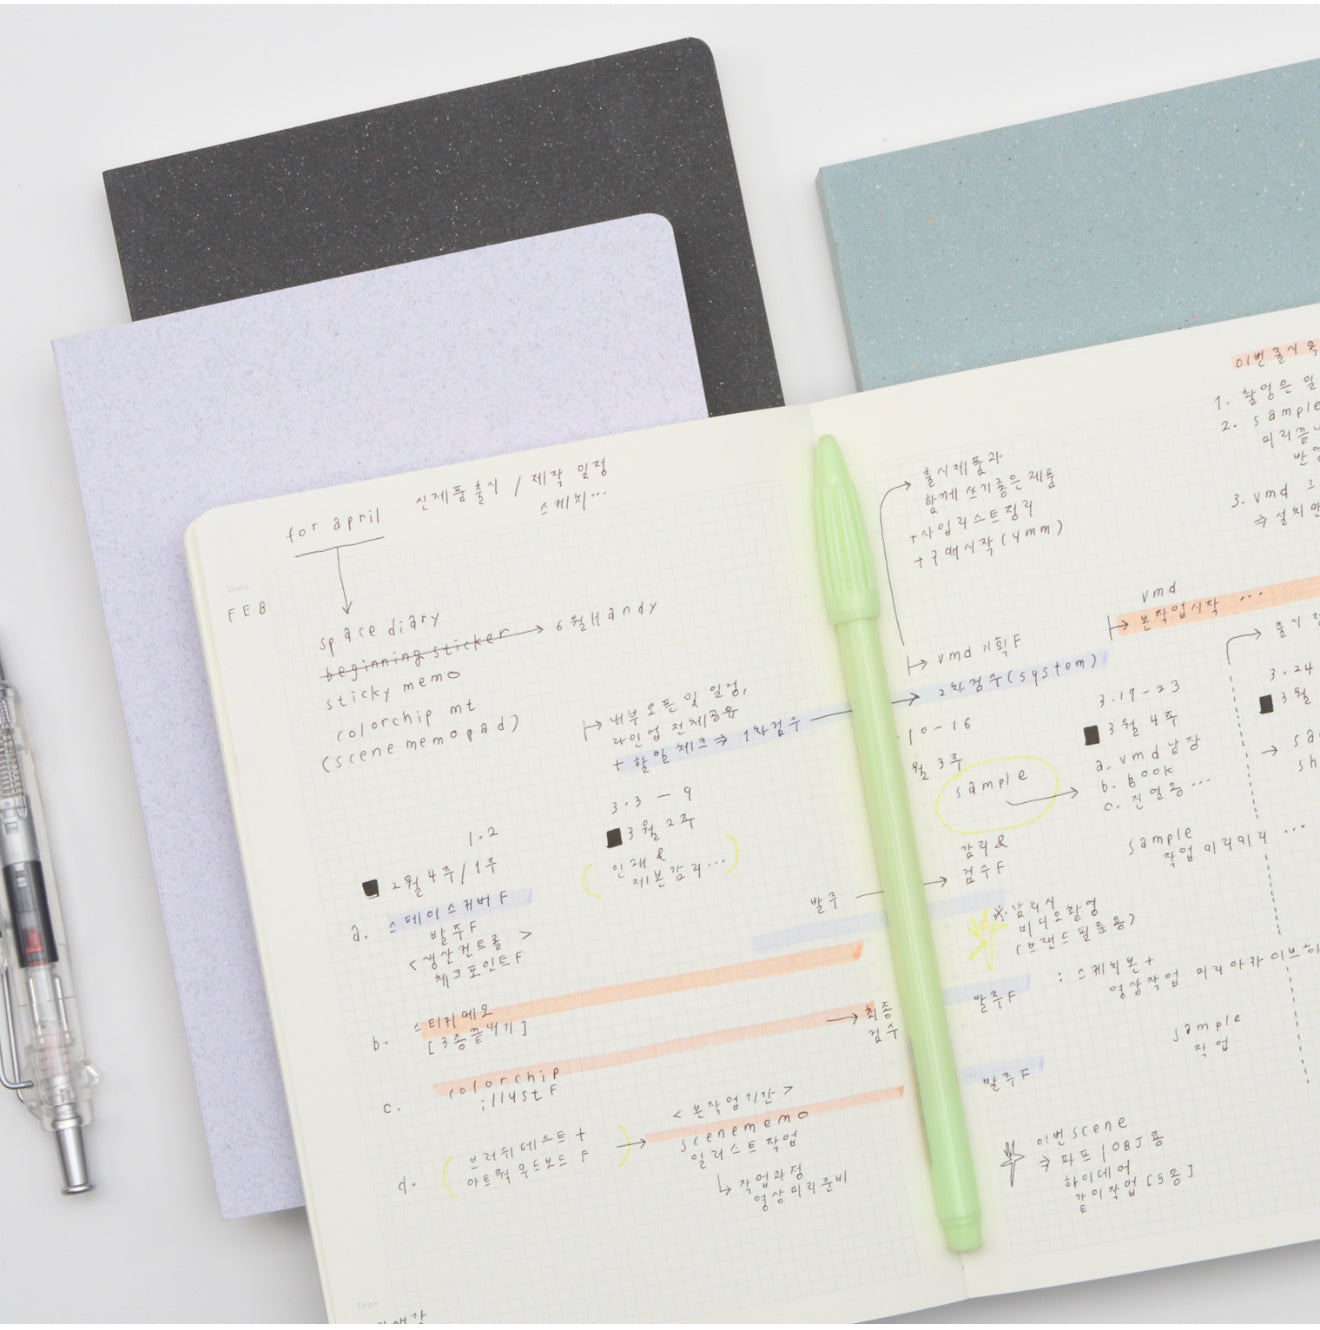 신제품출시 / 제작 일정
스케치...
for april
Date
FEB
space diary
beginning sticker → 6월 Handy
sticky memo
colorchip mt
(scene memopad)
내부 오픈일 일정,
라인업 전체공유
+ 할일 체크 ⇒ 1차검수
3.3 - 9
■ 3월 2주
(인쇄 &
제본감리...)
1.2
■ 2월 4주 / 1주
a. 스페이스커버 F
발주 F
<생산컨트롤>
체크포인트 F
b. 스티키메모
[3종끝내기]
c. colorchip
illust F
d. (브러쉬테스트 +
아트웍 무드보드 F) →
<본작업기간>
scenememo
일러스트 작업
↳ 작업과정
영상미리준비
발주 →
→ 최종
검수
출시제품과
함께 쓰기좋은 제품
+ 사입리스트정리
+ 구매시작 (4mm)
→ vmd 기획 F
→ 2차검수 (system)
10-16
월 3주
sample →
감리 &
검수 F
※ 감리시
비디오촬영
(브랜드 필름용)
: 스케치본 +
영상작업 미리아카이브하
발주 F
발주 F
이번 scene
⇒ 파프 / OBJ 용
하이데어
같이작업 [5종]
vmd
→ 본작업시작 ...
3.17-23
■ 3월 4주
a. vmd 납장
b. book
c. 진열용...
sample
작업 미리미리 ...
sample
작업
이번 출시 목
1. 촬영은 일
2. sample
미리끝내
반영
3. vmd
⇒ 설치
출시
3.24
■ 3월
→